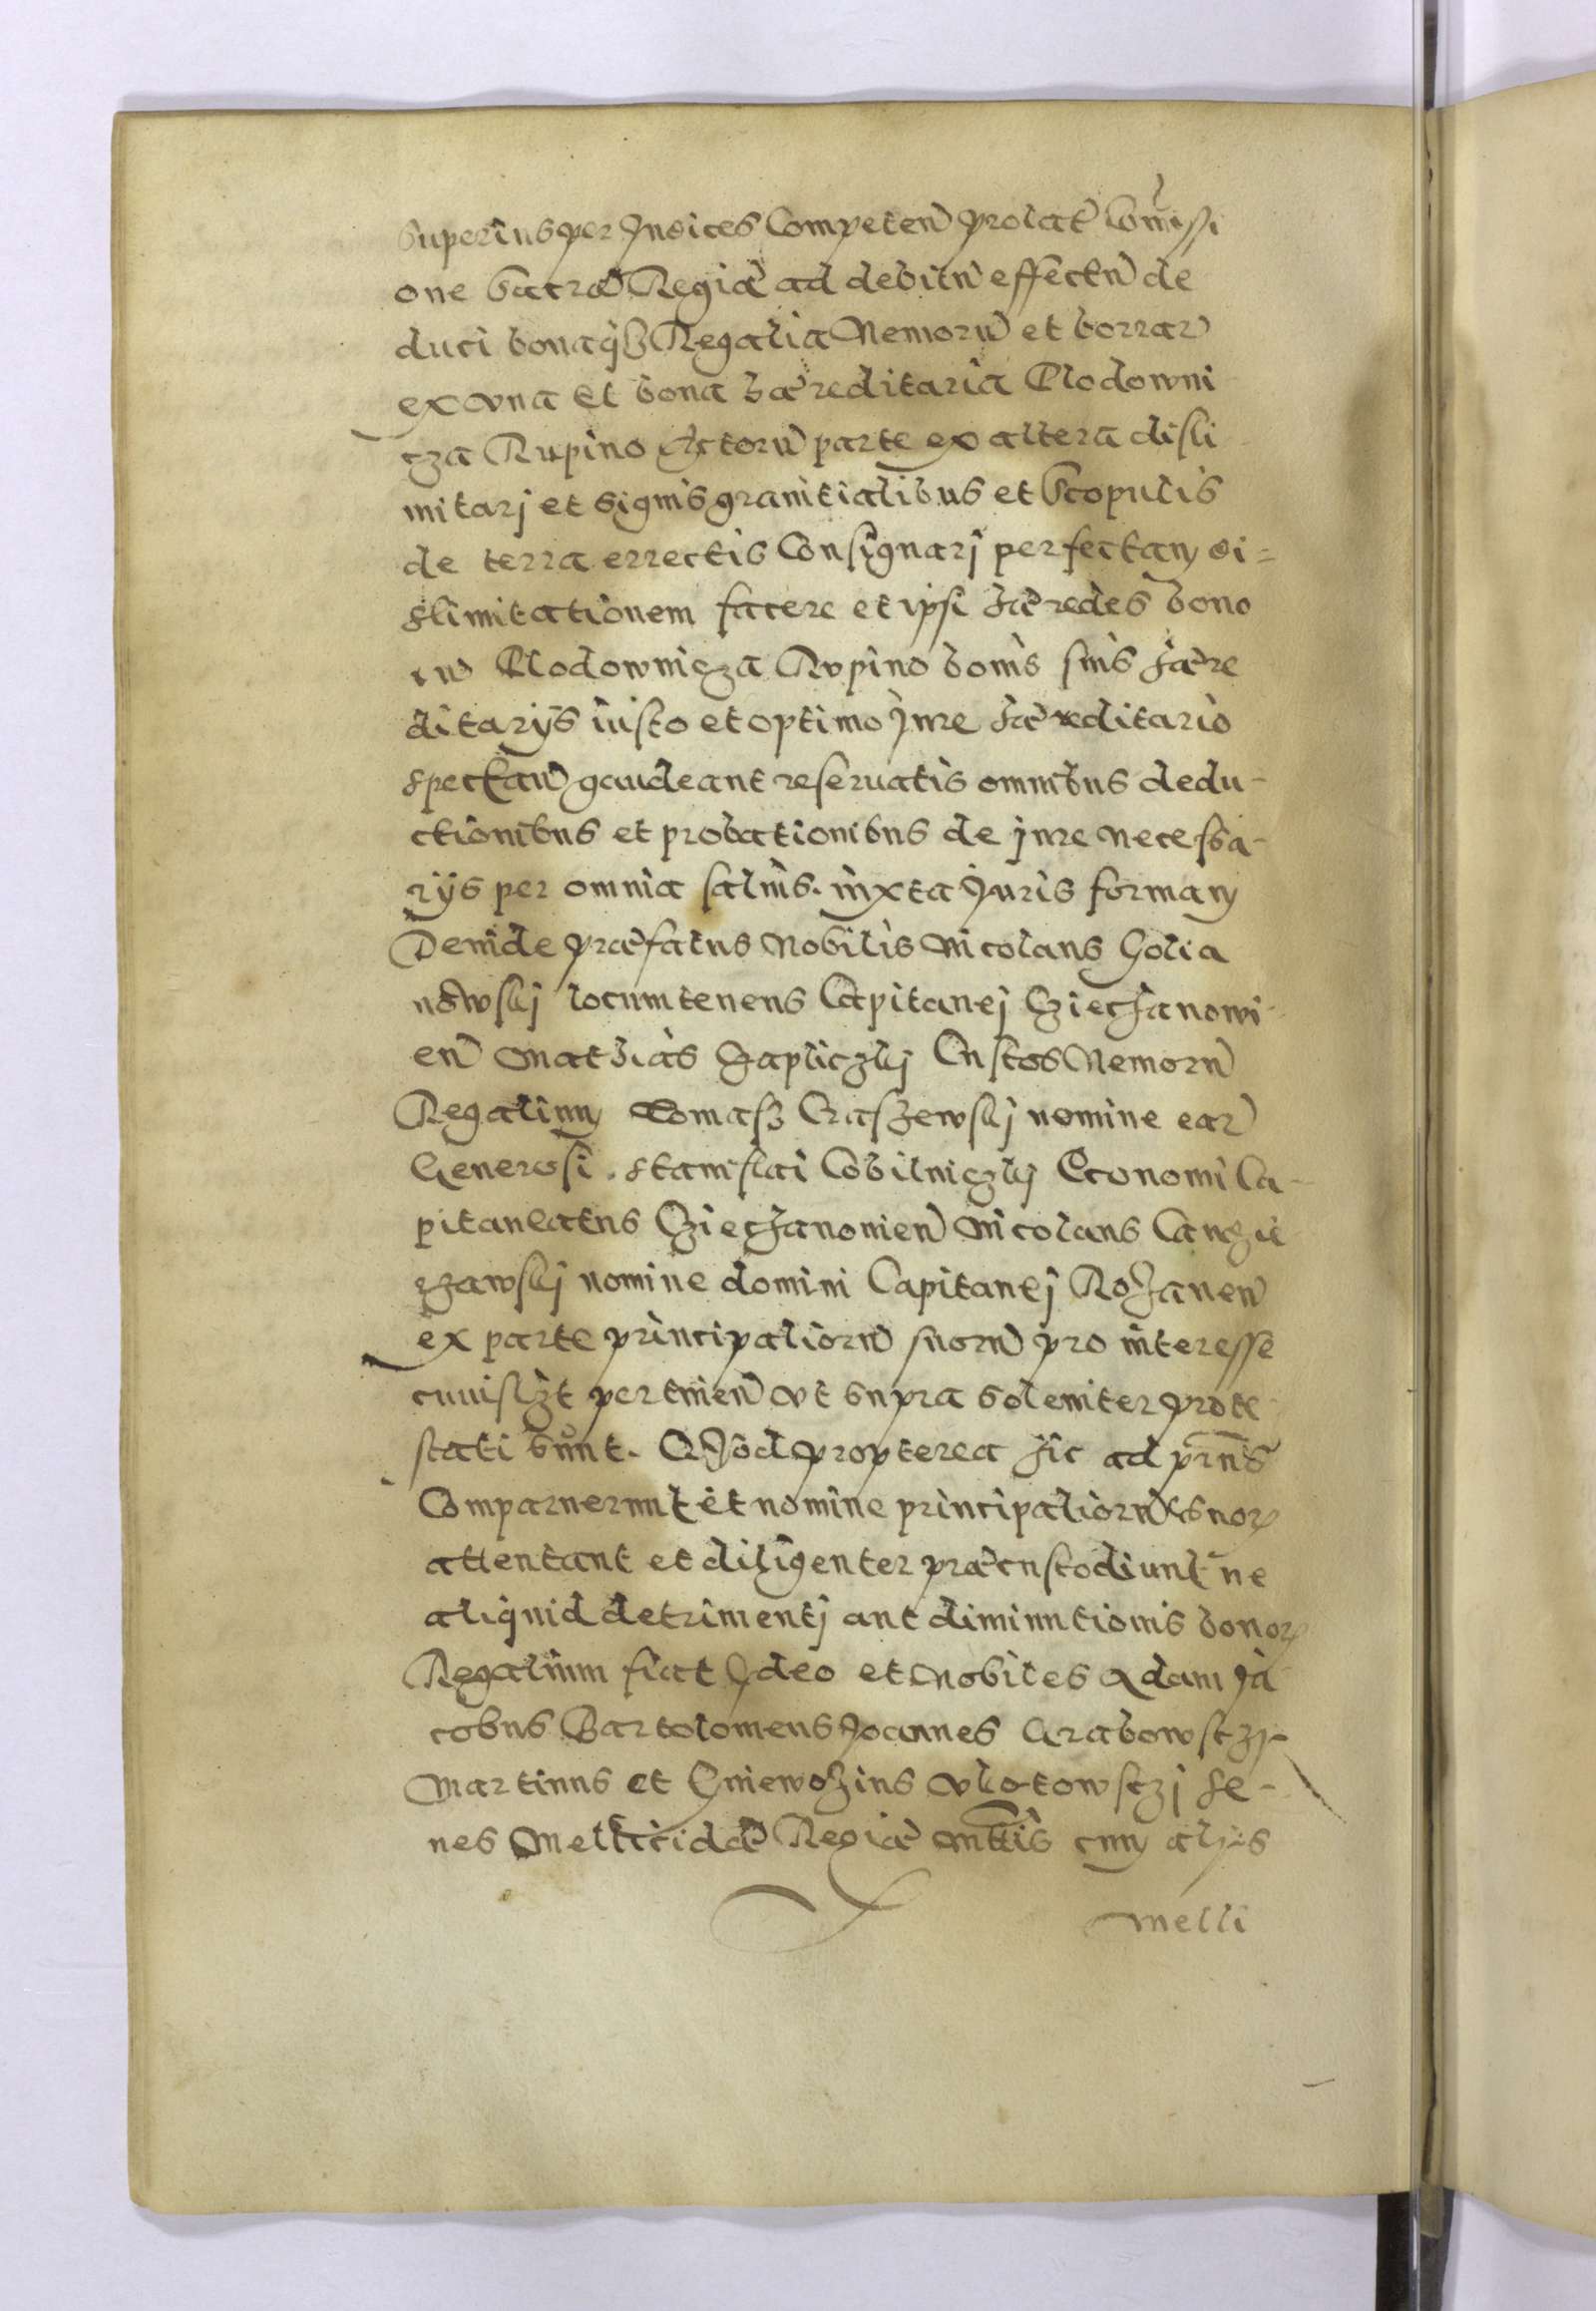 Superius per Judices Competen prolat Comissi
one Sacrae Regiae ad debitu effectu de
duci bonaqz Regalia Nemoru et borrar
ex vna et bona haereditaria Plodowni
cza Rupino Actoru parte ex altera disli
mitarj et signis granitialibus et Scopulis
de terra errectis Consignarj perfectam di=
slimitationem facere et ipsi haeredes bono
ru Plodownicza Rvpino bonis suis haere
ditarijs iusto et optimo Jure haereditario
spectan gaudeant reseruatis omnibus dedu-
ctionibus et probationibus de jure necessa-
rijs per omnia saluis. iuxta Juris formam
Deinde praefatus Nobilis Nicolaus Golia
nowskj locumtenens Capitanej Cziechanowi-
en Mathias Gapliczkj Custos Nemoru
Regalium Tomasz Craszewskj nomine ear
Generosi. Stanislai Cobilniczkj Economi Ca-
pitaneatus Cziechanouien Nicolaus Candzie
rzawskj nomine domini Capitanej Rozanen
ex parte principalioru suoru pro interesse
cuuislizt pertinen vt supra Solemniter prote
stati sunt. Quod propterea hic ad prns
Comparuerunt et nomine principalioru suor
attentant et diligenter praecustodiunt ne
aliquid detrimentj aut diminutionis bonor
Regalium fiat Ideo et Nobiles Adam Ja
cobus Bartolomeus Joannes Grabowsczj
Martinus et Gniewozius Vlotowsczj Se-
nes Mellicidae Regiae Mttis cum alijs
melli